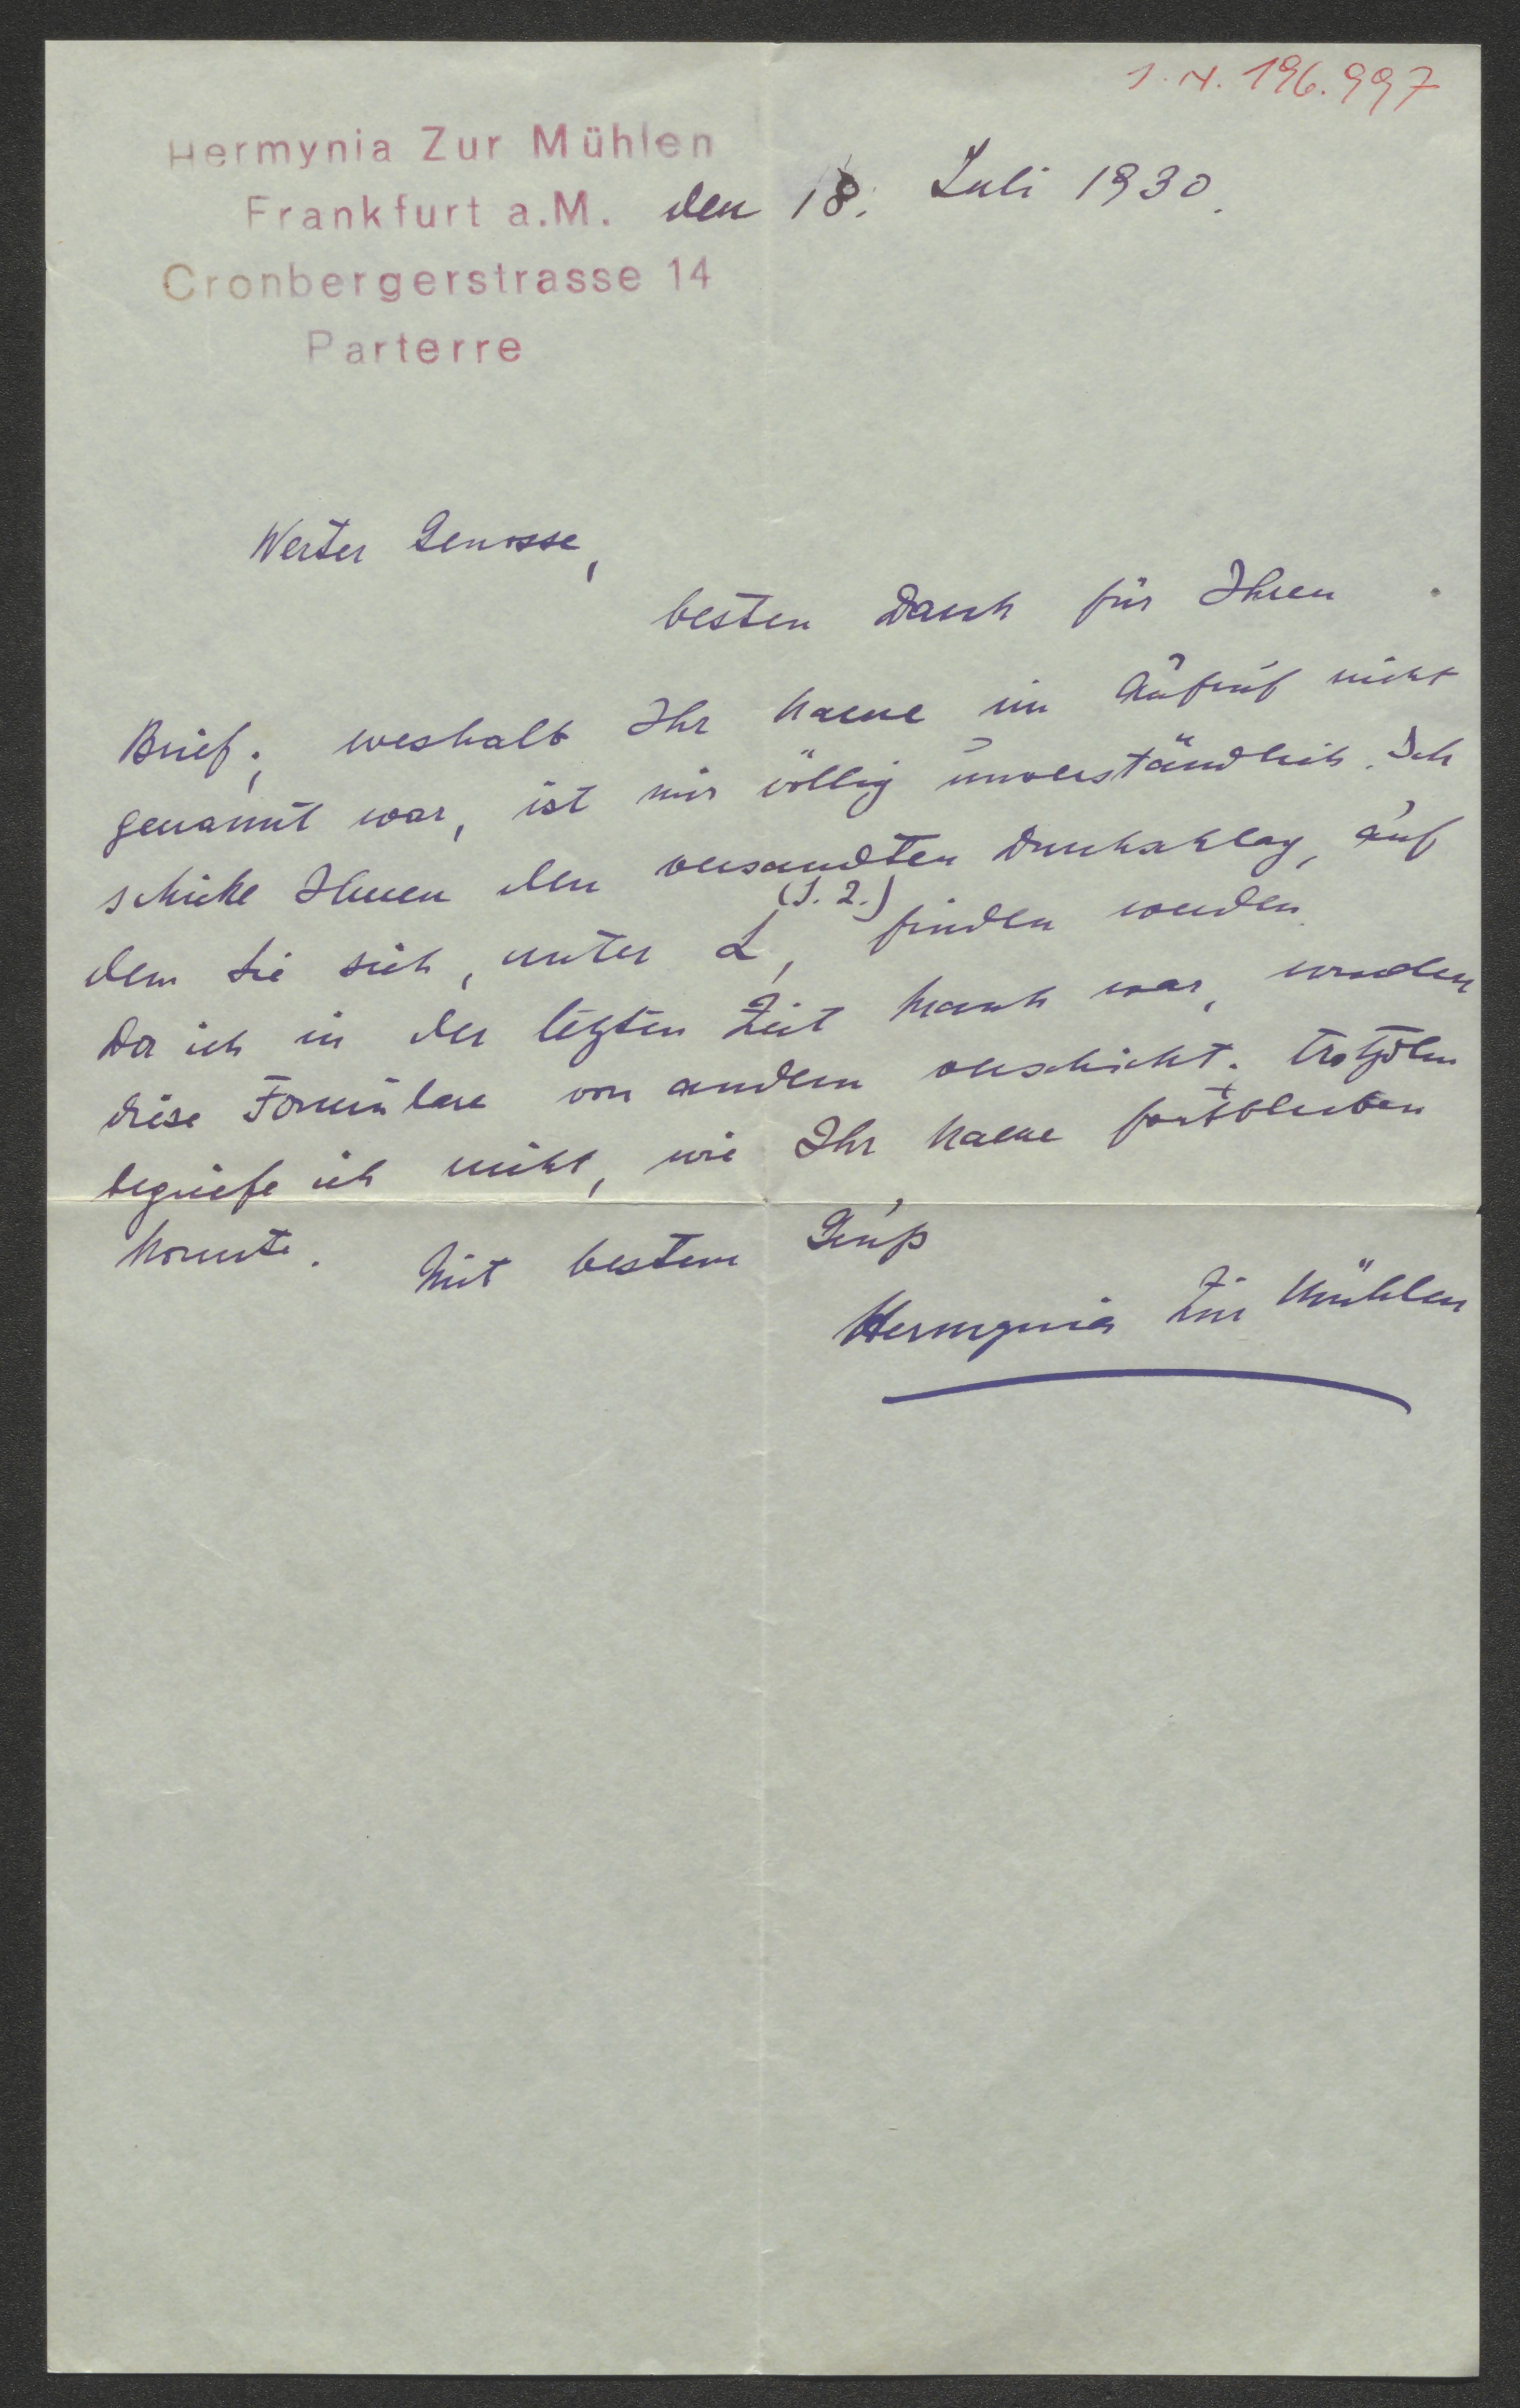 J. N. 196.997
Hermynia Zur Mühlen
Frankfurt a.M. den 18. Juli 1930.
Cronbergerstrasse 14
Parterre
Werter Genosse,
besten Dank für Ihren
Brief; weshalb Ihr Name im Aufruf nicht
genannt war, ist mir völlig unverständlich. Ich
schicke Ihnen den versandten Durchschlag, auf
dem Sie sich, unter L, (S. 2.) finden werden.
Da ich in der letzten Zeit krank war, wurden
diese Formulare von andern verschickt. Trotzdem
begreife ich nicht, wie Ihr Name fortbleiben
konnte. Mit bestem Gruß
Hermynia Zur Mühlen